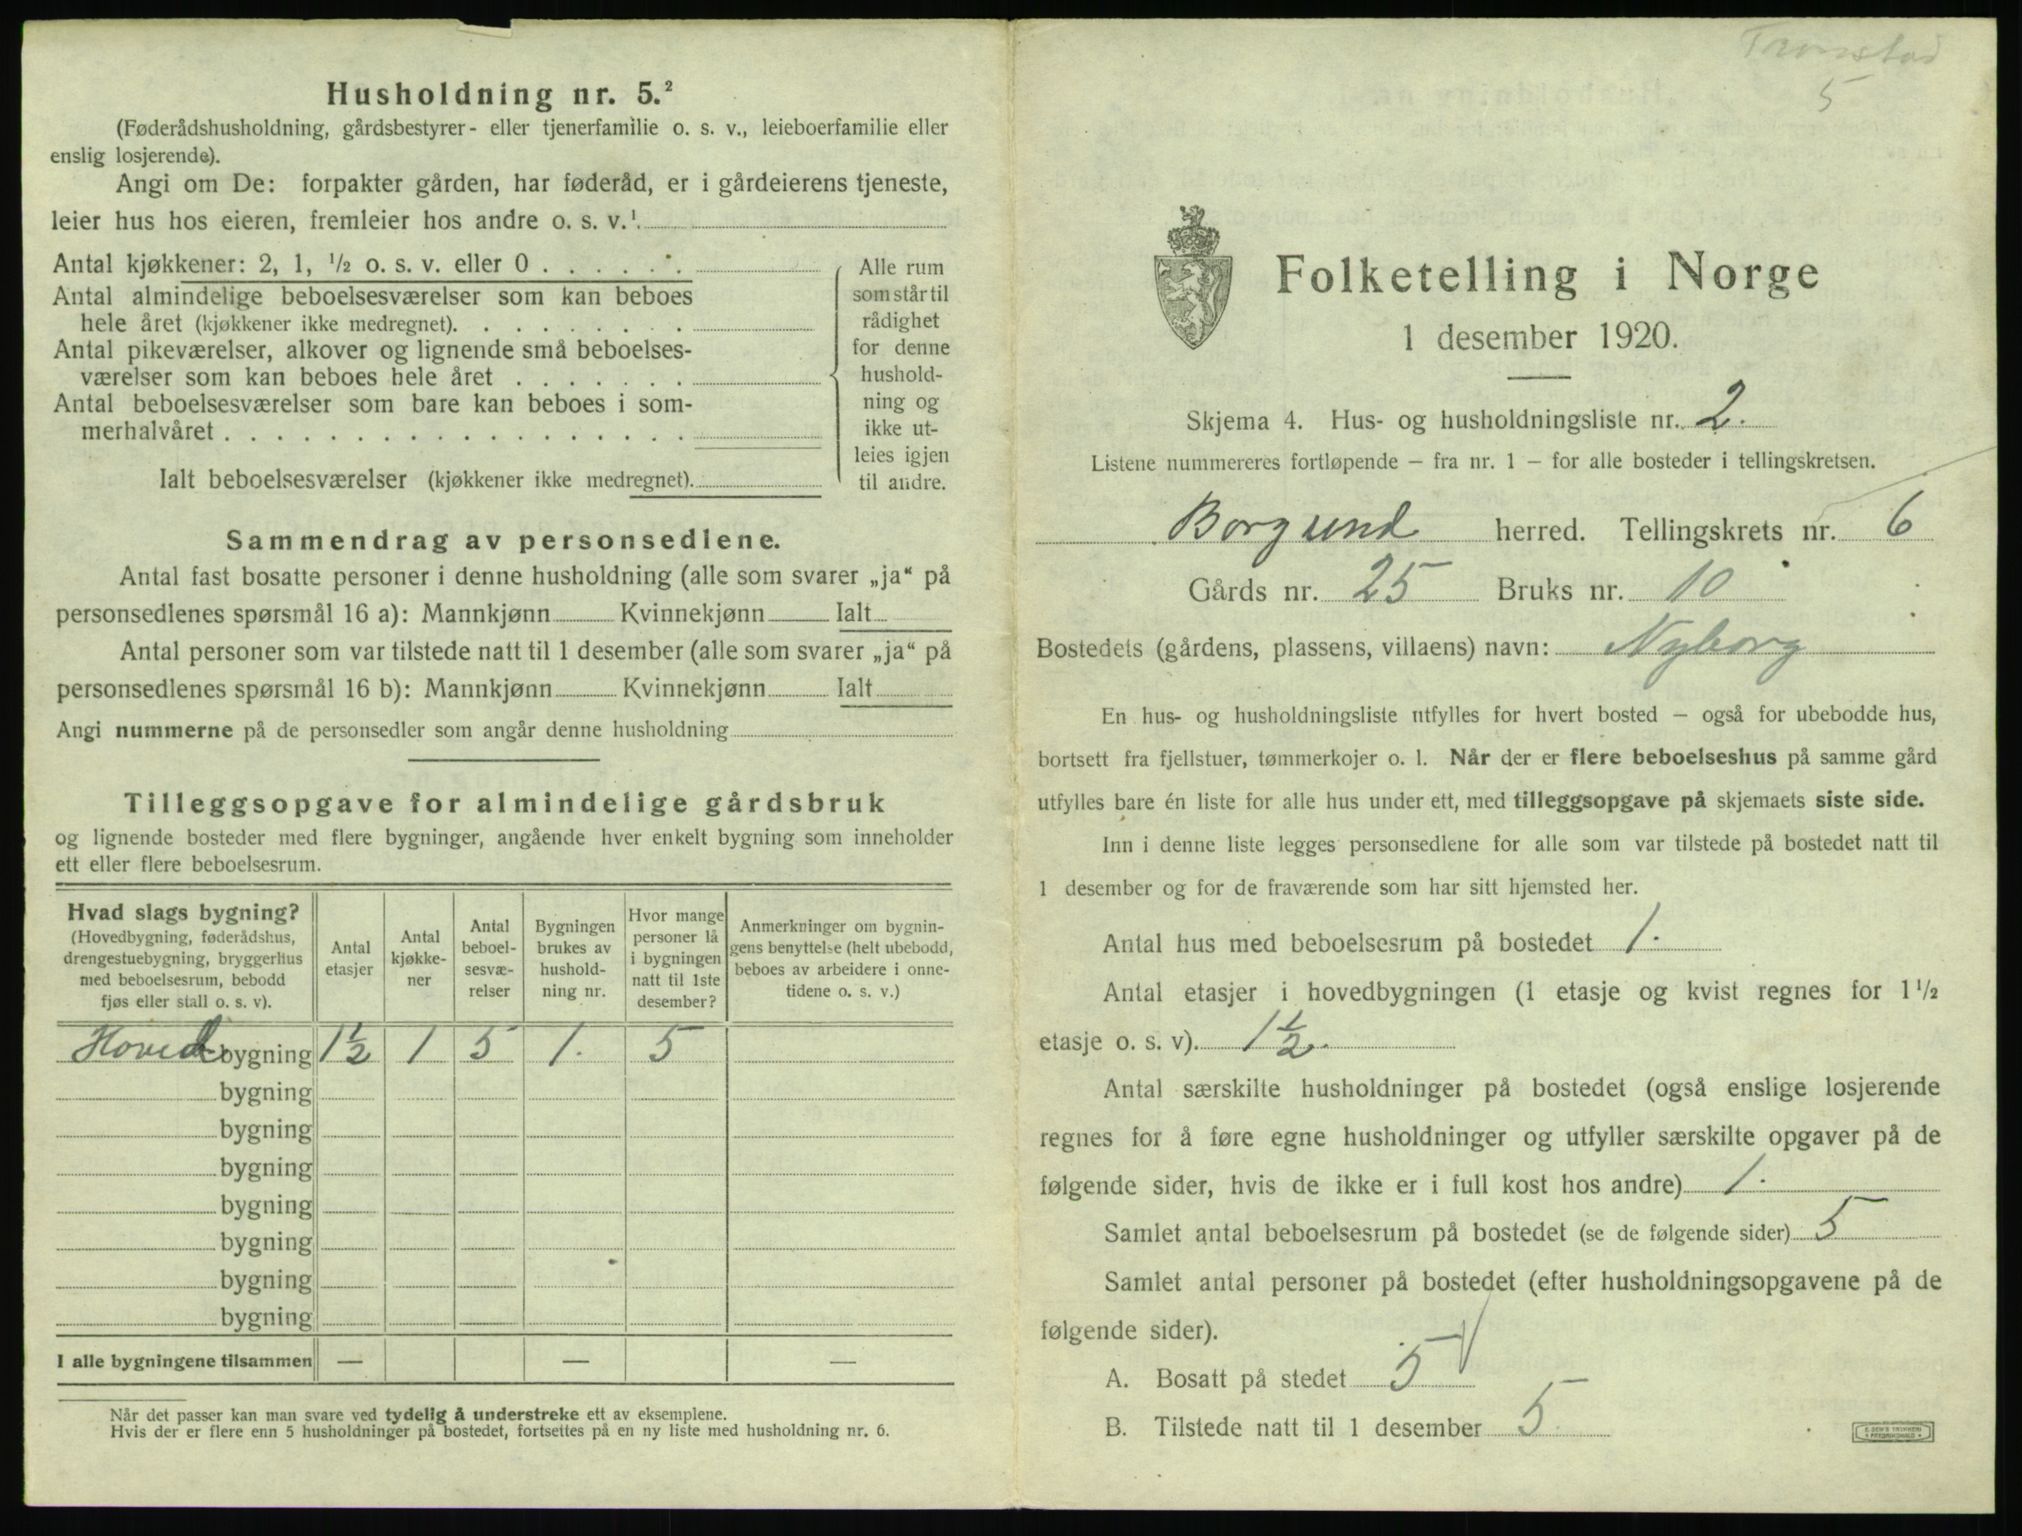 Husholdning nr. 5.²
(Føderådshusholdning, gårdsbestyrer- eller tjenerfamilie o. s. v., leieboerfamilie eller
enslig losjerende).
Angi om De: forpakter gården, har føderåd, er i gårdeierens tjeneste,
leier hus hos eieren, fremleier hos andre o. s. v.¹
Antal kjøkkener: 2, 1, ½ o. s. v. eller 0 . . . . . .
Antal almindelige beboelsesværelser som kan beboes
hele året (kjøkkener ikke medregnet). . . . . . . . .
Antal pikeværelser, alkover og lignende små beboelses-
værelser som kan beboes hele året . . . . . . .
Antal beboelsesværelser som bare kan beboes i som-
merhalvåret . . . . . . . . . . . . . . . . . .
Ialt beboelsesværelser (kjøkkener ikke medregnet).
Alle rum
som står til
rådighet
for denne
hushold-
ning og
ikke ut-
leies igjen
til andre.
Sammendrag av personsedlene.
Antal fast bosatte personer i denne husholdning (alle som svarer „ja“ på
personsedlenes spørsmål 16 a): Mannkjønn Kvinnekjønn Ialt
Antal personer som var tilstede natt til 1 desember (alle som svarer „ja“ på
personsedlenes spørsmål 16 b): Mannkjønn Kvinnekjønn Ialt
Angi nummerne på de personsedler som angår denne husholdning
Tilleggsopgave for almindelige gårdsbruk
og lignende bosteder med flere bygninger, angående hver enkelt bygning som inneholder
ett eller flere beboelsesrum.
Hvad slags bygning?
(Hovedbygning, føderådshus,
drengestuebygning, bryggerhus
med beboelsesrum, bebodd
fjøs eller stall o. s. v).
Antal
etasjer
Antal
kjøkke-
ner
Antal
beboel-
sesvæ-
relser
Bygningen
brukes av
hushold-
ning nr.
Hvor mange
personer lå
i bygningen
natt til 1ste
desember?
Anmerkninger om bygnin-
gens benyttelse (helt ubebodd,
beboes av arbeidere i onne-
tidene o. s. v.)
Hovedbygning 1½ 1 5 1. 5
bygning
bygning
bygning
bygning
bygning
bygning
bygning
I alle bygningene tilsammen — — —
Når det passer kan man svare ved tydelig å understreke ett av eksemplene.
Hvis der er flere enn 5 husholdninger på bostedet, fortsettes på en ny liste med husholdning nr. 6.
Tronstad
5
Folketelling i Norge
1 desember 1920.
Skjema 4. Hus- og husholdningsliste nr. 2.
Listene nummereres fortløpende – fra nr. 1 – for alle bosteder i tellingskretsen.
Borgund herred. Tellingskrets nr. 6
Gårds nr. 25 Bruks nr. 10
Bostedets (gårdens, plassens, villaens) navn: Nyborg
En hus- og husholdningsliste utfylles for hvert bosted – også for ubebodde hus,
bortsett fra fjellstuer, tømmerkojer o. l. Når der er flere beboelseshus på samme gård
utfylles bare én liste for alle hus under ett, med tilleggsopgave på skjemaets siste side.
Inn i denne liste legges personsedlene for alle som var tilstede på bostedet natt til
1 desember og for de fraværende som har sitt hjemsted her.
Antal hus med beboelsesrum på bostedet 1.
Antal etasjer i hovedbygningen (1 etasje og kvist regnes for 1 ½
etasje o. s. v). 1½.
Antal særskilte husholdninger på bostedet (også enslige losjerende
regnes for å føre egne husholdninger og utfyller særskilte opgaver på de
følgende sider, hvis de ikke er i full kost hos andre) 1.
Samlet antal beboelsesrum på bostedet (se de følgende sider) 5
Samlet antal personer på bostedet (efter husholdningsopgavene på de
følgende sider).
A. Bosatt på stedet 5
B. Tilstede natt til 1 desember 5.